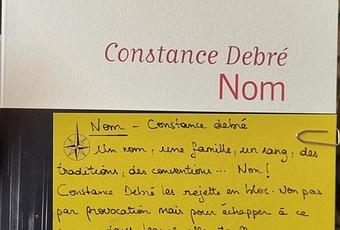 Constance Debré
Nom
Nom - Constance debré
Un nom, une famille, un rang, des
traditions, des conventions... Non!
Constance Debré les rejette en bloc. Non pas
par provocation mais pour échapper à ce